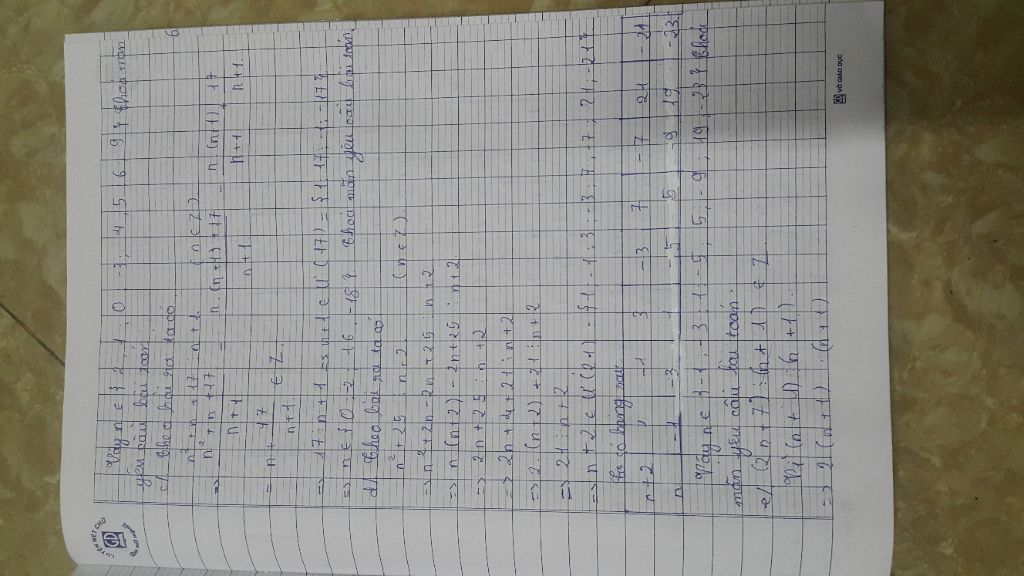 Vậy n ∈ { 2 ; 1 ; 0 ; 3 ; 4 ; 5 ; 6 ; 9 } thoả mãn
yêu cầu bài toán 6
c/ Theo bài ra ta có
n² + n + 17 ⋮ n + 1 (n ∈ Z)
=> n² + n + 17 / n + 1 = n. (n+1) + 17 / n + 1 = n (n+1) / n+1 + 17 / n+1
= n + 17 / n+1 ∈ Z.
=> 17 ⋮ n + 1 => n+1 ∈ Ư (17) = { 1 ; 17 ; -1 ; -17 }
=> n ∈ { 0 ; -2 ; 16 ; -18 } thoả mãn yêu cầu bài toán
d/ Theo bài ra ta có
n² + 25 ⋮ n + 2 (n ∈ Z)
=> n² + 2n - 2n + 25 ⋮ n + 2
=> n (n+2) - 2n + 25 ⋮ n + 2
=> 2n + 25 ⋮ n + 2
=> 2n + 4 + 21 ⋮ n + 2
=> 2 (n + 2) + 21 ⋮ n + 2
=> 21 ⋮ n + 2
=> n + 2 ∈ Ư (21) = { 1 ; -1 ; 3 ; -3 ; 7 ; -7 ; 21 ; -21 }
Ta có bảng sau
n + 2 1 -1 3 -3 7 -7 21 -21
n -1 -3 1 -5 5 -9 19 -23
Vậy n ∈ { -1 ; -3 ; 1 ; -5 ; 5 ; -9 ; 19 ; -23 } thoả
mãn yêu cầu bài toán.
e/ (2n + 7) ⋮ (n + 1) ∈ Z
Vì (n + 1) ⋮ (n + 1)
=> 2 (n + 1) ⋮ (n + 1)
VỞ GIÁO DỤC